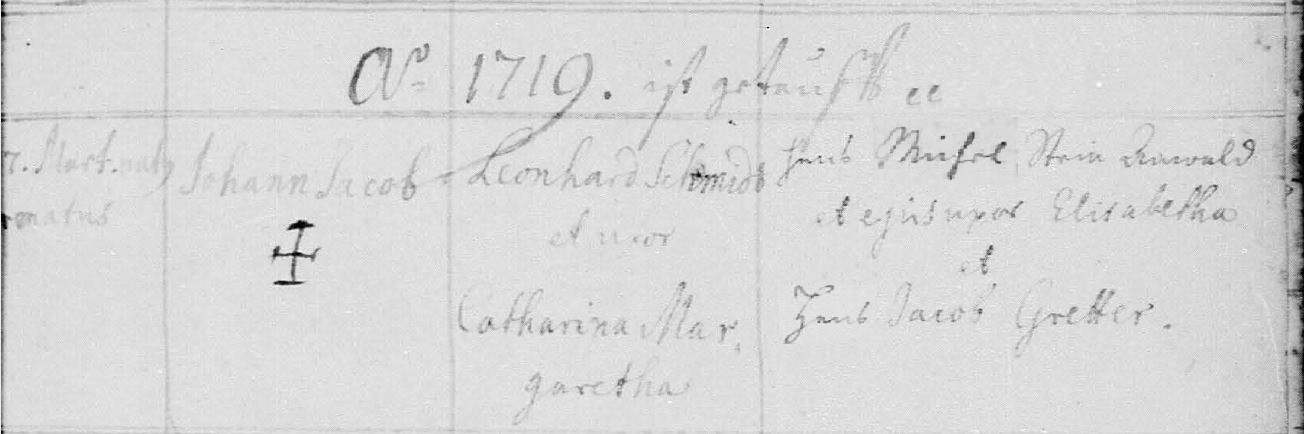 Ao 1719. ist getaufft
7. Mart. natus
Johann Jacob
Leonhard Schmidt
et uxor
Catharina Mar,
garetha
Hans Michel Stein Anwald
et ejus uxor Elisabetha
et
Hans Jacob Gretter.